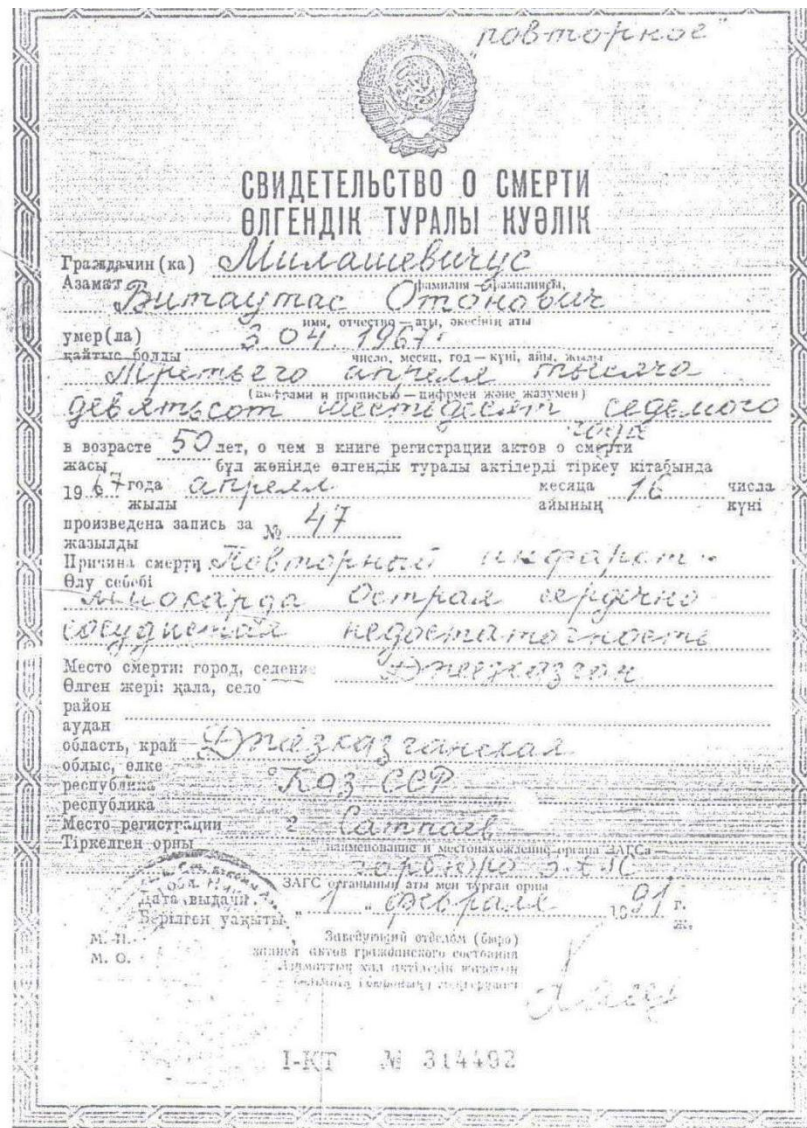 "повторное"
СВИДЕТЕЛЬСТВО О СМЕРТИ
ӨЛГЕНДІК ТУРАЛЫ КУӘЛІК
Гражданин (ка) Милашевичус
Азамат фамилия — фамилиясы,
Витаутас Отонович
имя, отчество — аты, әкесінің аты
умер(ла) 3.04.1967г.
қайтыс болды число, месяц, год — күні, айы, жылы
Третьего апреля тысяча
(цифрами и прописью — цифрмен және жазумен)
девятьсот шестьдесят седьмого
года
в возрасте 50 лет, о чем в книге регистрации актов о смерти
жасы бұл жөнінде өлгендік туралы актілерді тіркеу кітабында
1967 года апреля месяца 16 числа
жылы айының күні
произведена запись за № 47
жазылды
Причина смерти Повторный инфаркт
Өлу себебі
миокарда Острая сердечно
сосудистая недостаточность
Место смерти: город, селение Джезказган
Өлген жері: қала, село
район
аудан
область, край Джезказганская
облыс, өлке
республика Каз ССР
республика
Место регистрации г Сатпаев
Тіркелген орны наименование и местонахождение органа ЗАГСа —
горбюро ЗАГС
ЗАГС органының аты мен тұрған орны
Дата выдачи „1" февраля 1991 г.
Берілген уақыты ж.
М. П. Заведующий отделом (бюро)
М. О. записи актов гражданского состояния
I-КТ № 314492